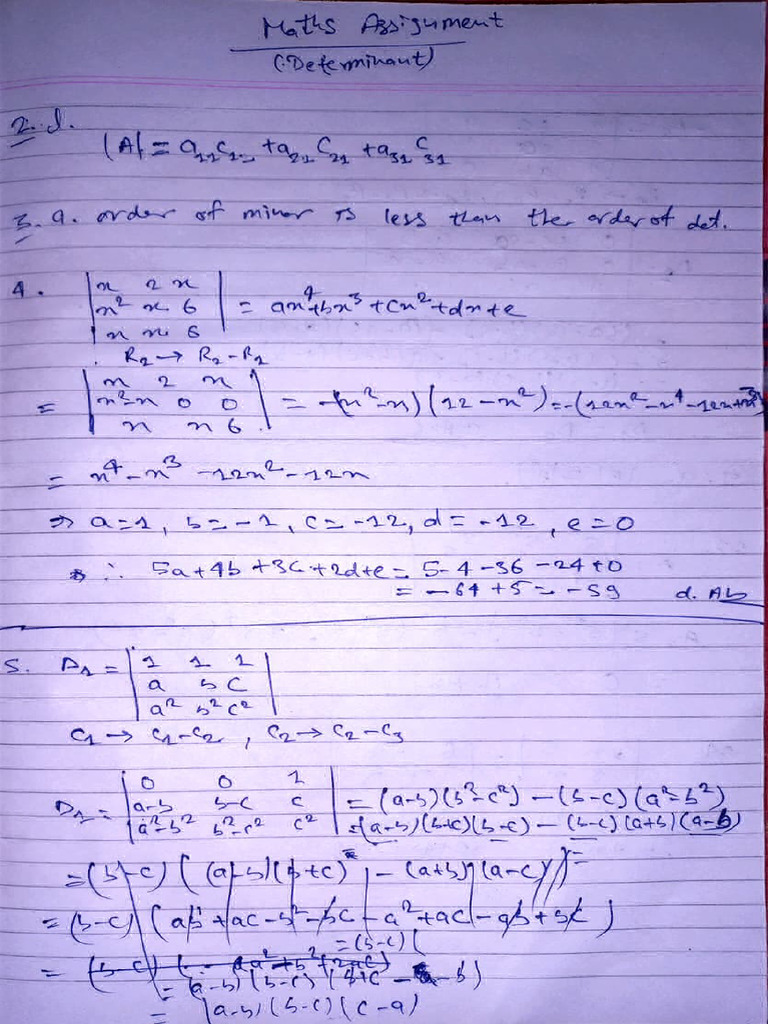 Maths Assignment
(Determinant)
2. d.
|A| = a₁₁C₁₁ + a₂₁ C₂₁ + a₃₁ C₃₁
3. a. order of minor is less than the order of det.
4. |x 2 x|
|x² x 6| = ax⁴+bx³+cx²+dx+e
|x x 6|
R₂ → R₂-R₁
|x 2 x|
= |x²-x 0 0| = -(x²-x)(12-x²) = -(12x²-x⁴-12x+x³)
|x x 6|
= x⁴-x³-12x²-12x
⇒ a=1, b=-1, c=-12, d=-12, e=0
∴ 5a+4b+3c+2d+e = 5-4-36-24+0
= -64+5 = -59 d. Ans
5. D₁ = |1 1 1|
|a b c|
|a² b² c²|
C₁ → C₁-C₂, C₂ → C₂-C₃
|0 0 1|
D₁ = |a-b b-c c| = (a-b)(b²-c²) - (b-c)(a²-b²)
|a²-b² b²-c² c²| = (a-b)(b+c)(b-c) - (b-c)(a+b)(a-b)
= (b-c) ((a-b)(b+c) - (a+b)(a-c)) =
= (b-c) (ab+ac-b²-bc-a²+ac-ab+bc)
= (b-c) (
= (a-b)(b-c) (b+c-a-b)
= (a-b)(b-c)(c-a)